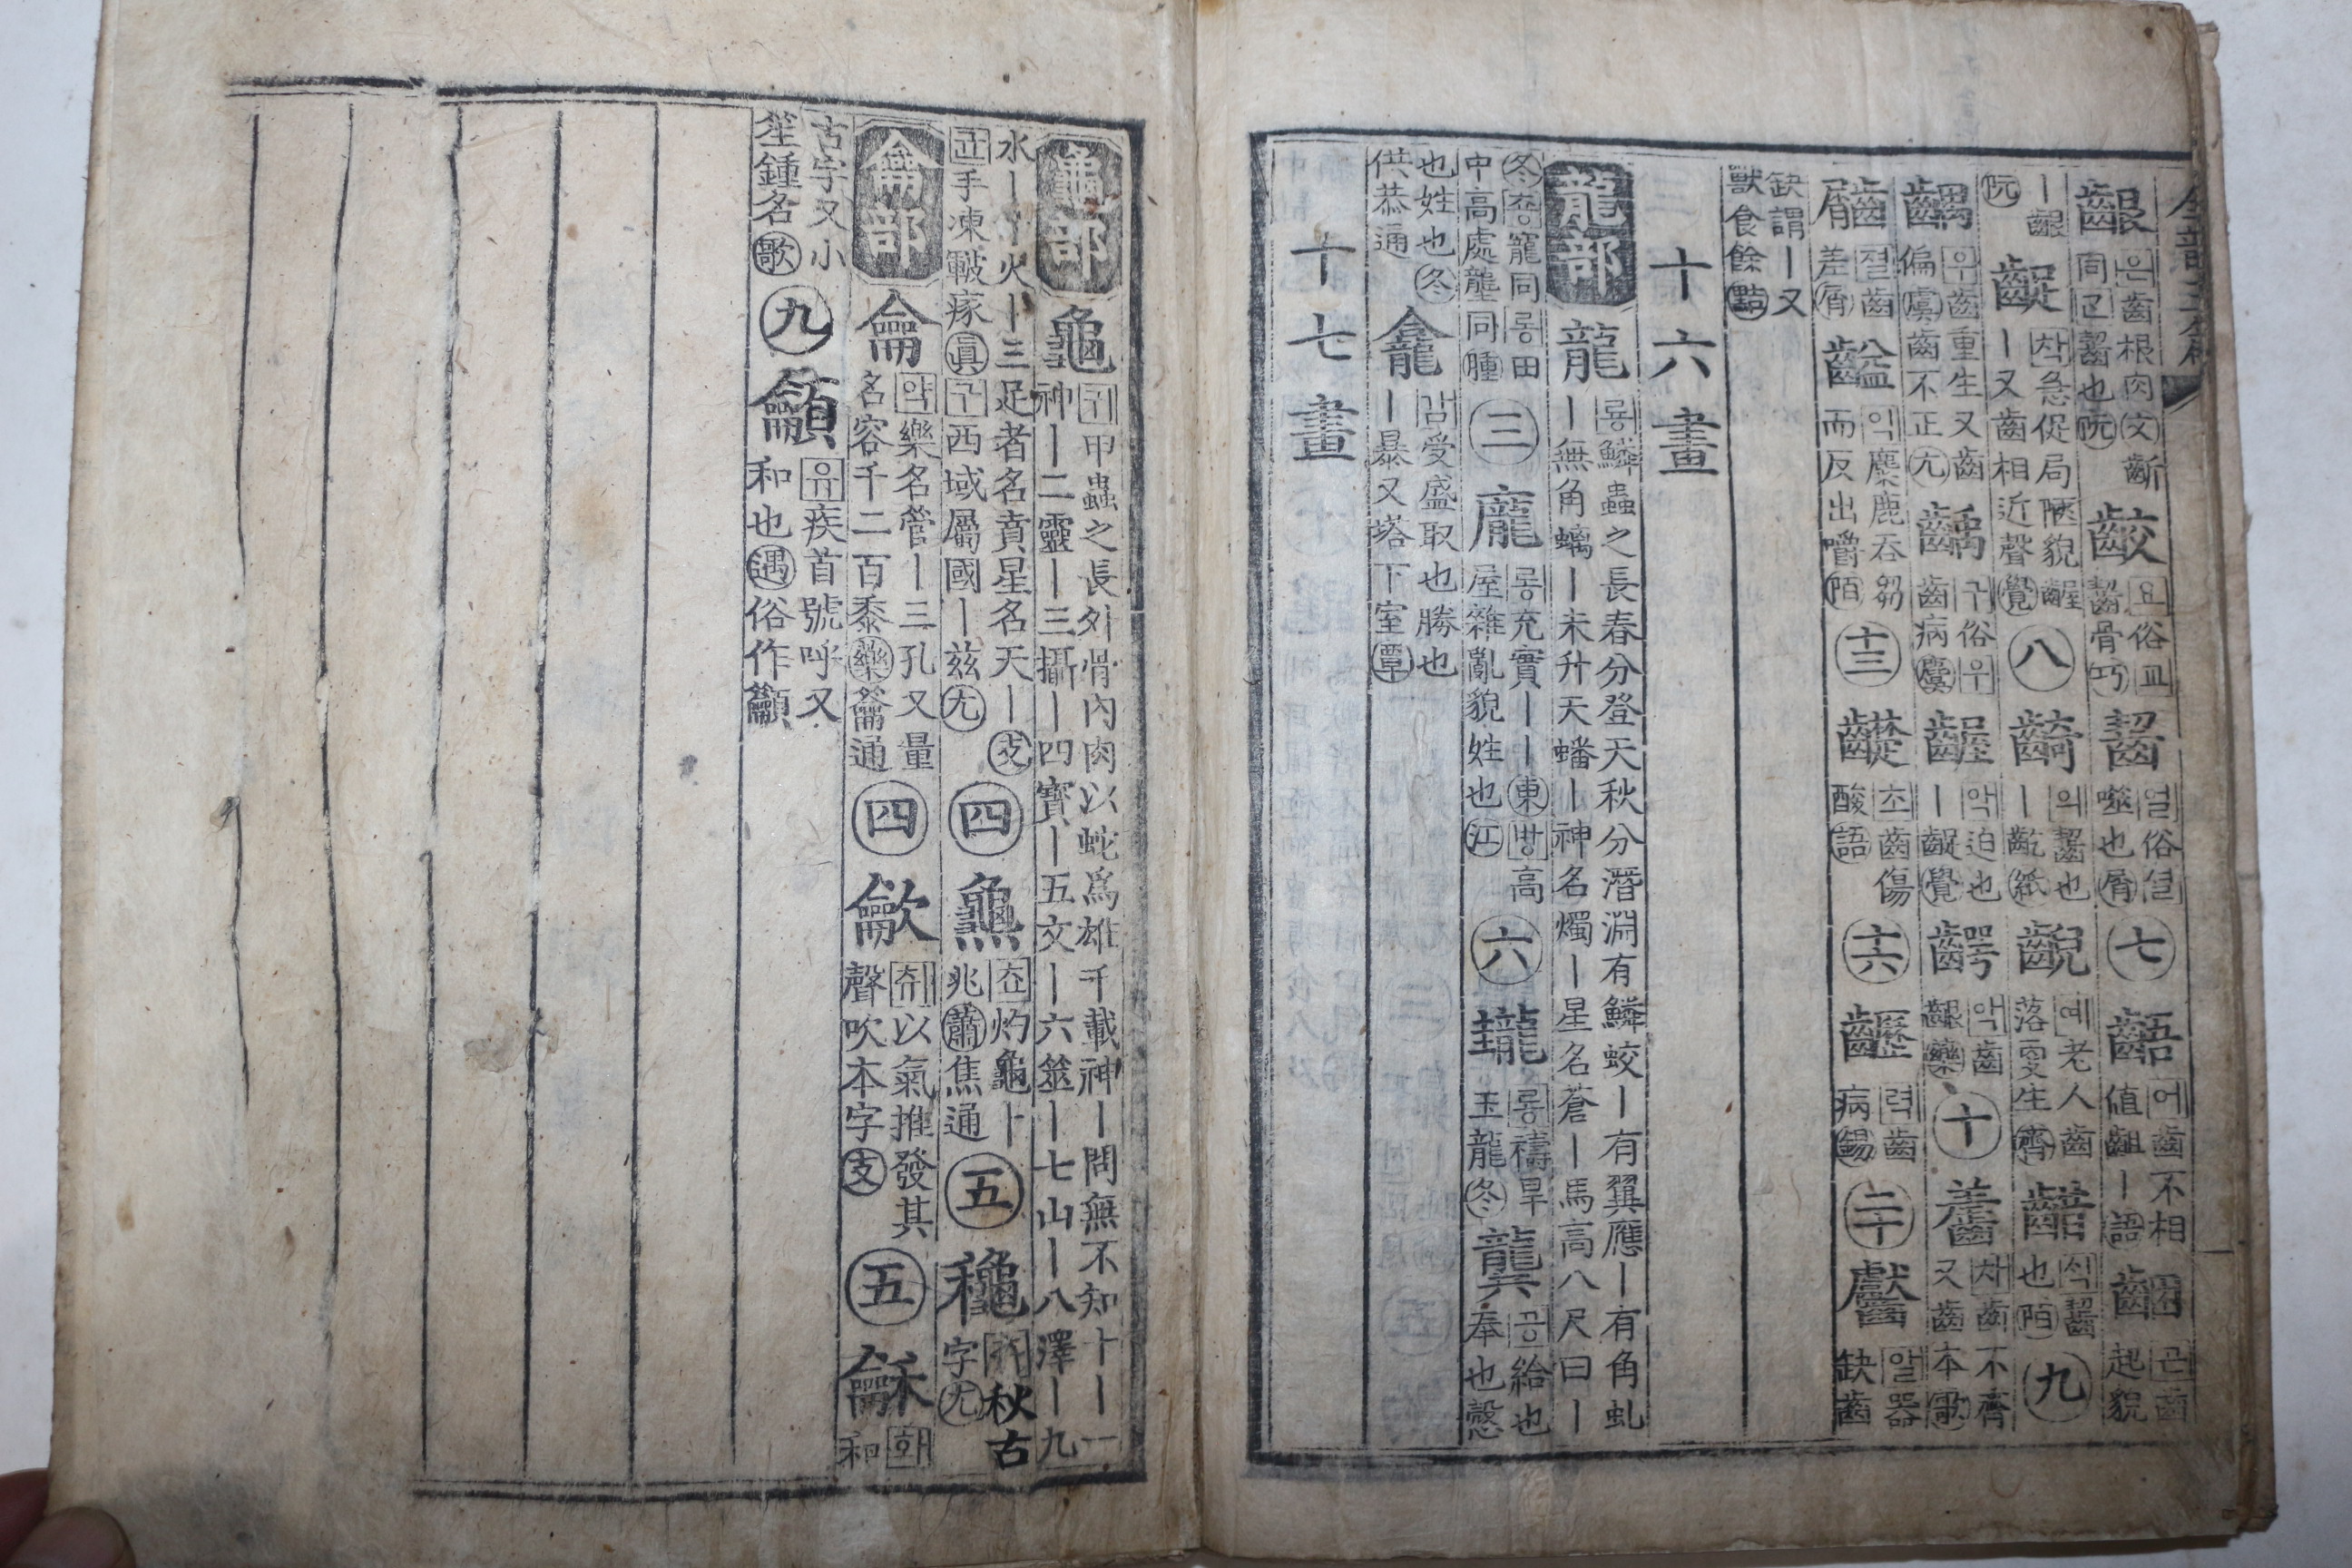 齦 은齒根肉文齗同간齧也阮 齩 요俗교齧骨巧 齧 열俗설噬也屑 七 齬 어齒不相値齟丨語 齫 곤齒起貌
丨齦阮 齪 착急促局陋貌齷丨又齒相近聲覺 八 齮 의齧也丨齕紙 齯 예老人齒落更生齊 齰 색齧也陌 九
齵 우齒重生又齒偏虞齒不正尤 齲 구俗우齒病麌 齷 악迫也丨齪覺 齶 악齒齦藥 十 齹 차齒不齊又齒本歌
절齒差屑 齸 익麋鹿呑芻而反出嚼陌 十三 齼 초齒傷酸語 十六 력齒病錫 二十 齾 알器缺齒
缺謂丨又獸食餘黠
十六畫
龍部 龍 룡鱗蟲之長春分登天秋分潛淵有鱗蛟丨有翼應丨有角虬丨無角螭丨未升天蟠丨神名燭丨星名蒼丨馬高八尺曰丨
冬춍寵同롱田中高處壟同腫 三 龐 롱充實丨丨東방高屋雜亂貌姓也江 六 瓏 롱禱旱玉龍冬 龔 공給也奉也愨
也姓也冬供恭通 龕 감受盛取也勝也丨暴又塔下室覃
十七畫
龜部 龜 귀甲蟲之長外骨內肉以蛇爲雄千載神丨問無不知十丨一神丨二靈丨三攝丨四寶丨五文丨六筮丨七山丨八澤丨九
水丨十火丨三足者名賁星名天丨支균手凍皸瘃眞구西域屬國丨茲尤 四 龝 초灼龜丨兆蕭焦通 五 龝 秋古字尤
龠部 龠 약樂名管丨三孔又量名容千二百黍藥籥通 四 龡 츄以氣推發其聲吹本字支 五 龢 화和
古字又小笙鍾名歌 九 龥 유疾首號呼又和也遇俗作籲